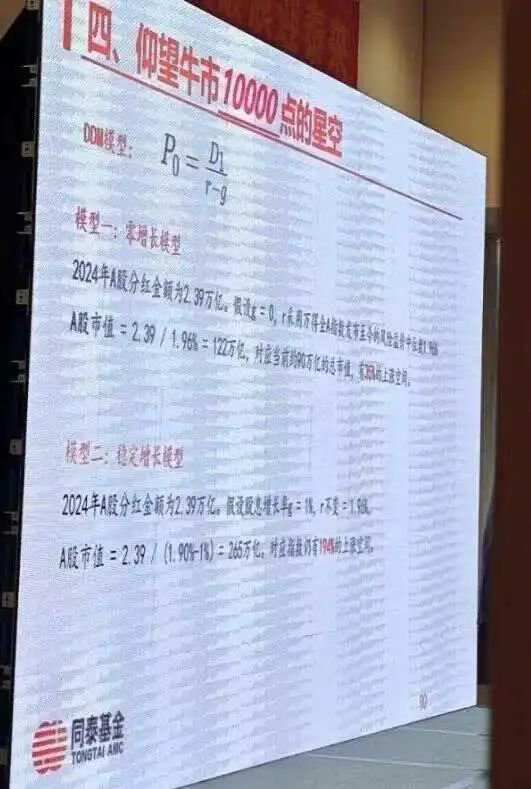 四、仰望牛市10000点的星空
DDM模型: P₀ = D1 / r-g
模型一:零增长模型
2024年A股分红金额为2.39万亿。假设g = 0, r采用万得全A指数发布至今的风险溢价中位数1.96%
A股市值 = 2.39 / 1.96% = 122万亿, 对应当前约90万亿的总市值, 有35%的上涨空间。
模型二:稳定增长模型
2024年A股分红金额为2.39万亿。假设股息增长率g = 1%, r不变 = 1.96%,
A股市值 = 2.39 / (1.90%-1%) = 265万亿, 对应指数仍有194%的上涨空间。
同泰基金
TONGTAI AMC